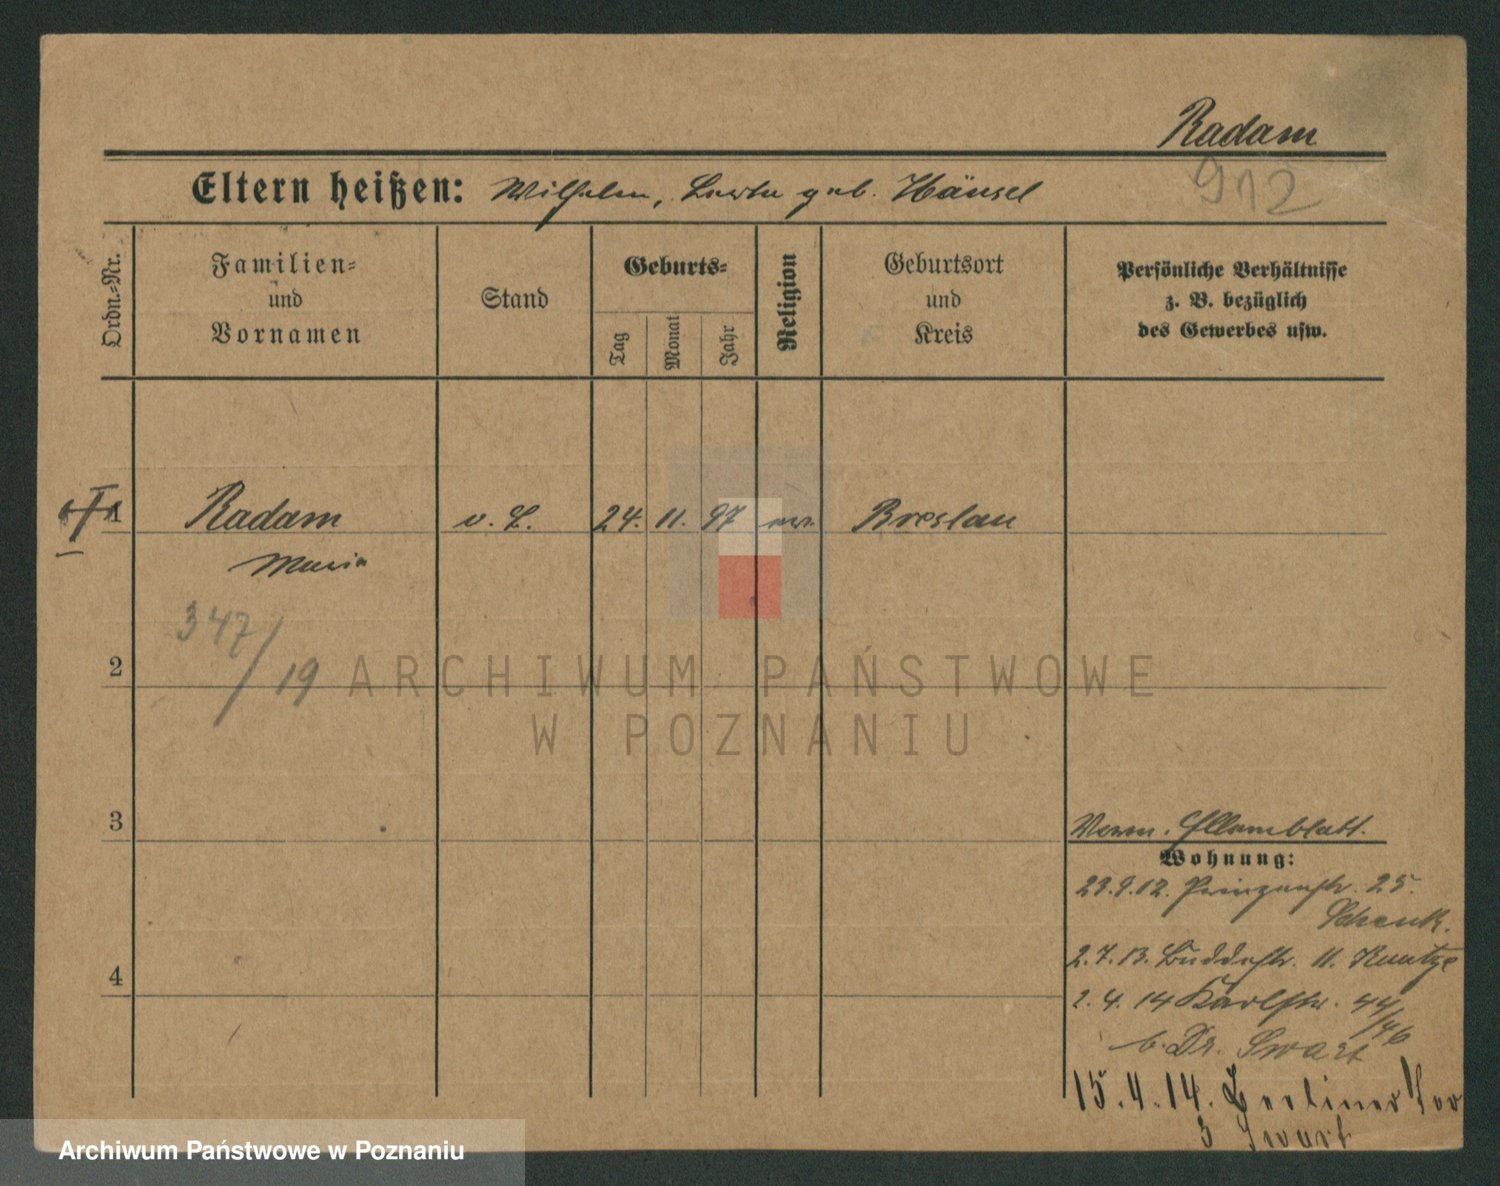 Radam
912
Eltern heißen: Wilhelm, geb. Hänsel
Ordn.-Nr.
Familien-
und
Vornamen
Stand
Geburts-
Tag
Monat
Jahr
Religion
Geburtsort
und
Kreis
Persönliche Verhältnisse
z. B. bezüglich
des Gewerbes usw.
1 Radam v. L. 24. 11. 97 Breslau
Maria
347/19
2
ARCHIWUM PAŃSTWOWE
W POZNANIU
3
Wohnung:
23.9.12. Prinzenstr. 25.
Schenk.
2.7.13. Buddestr. 11. Kuntze
2.4.14 Karlstr. 44/46
b. Dr. Swart
4
15.4.14. Berliner Tor
3 Swart
Archiwum Państwowe w Poznaniu